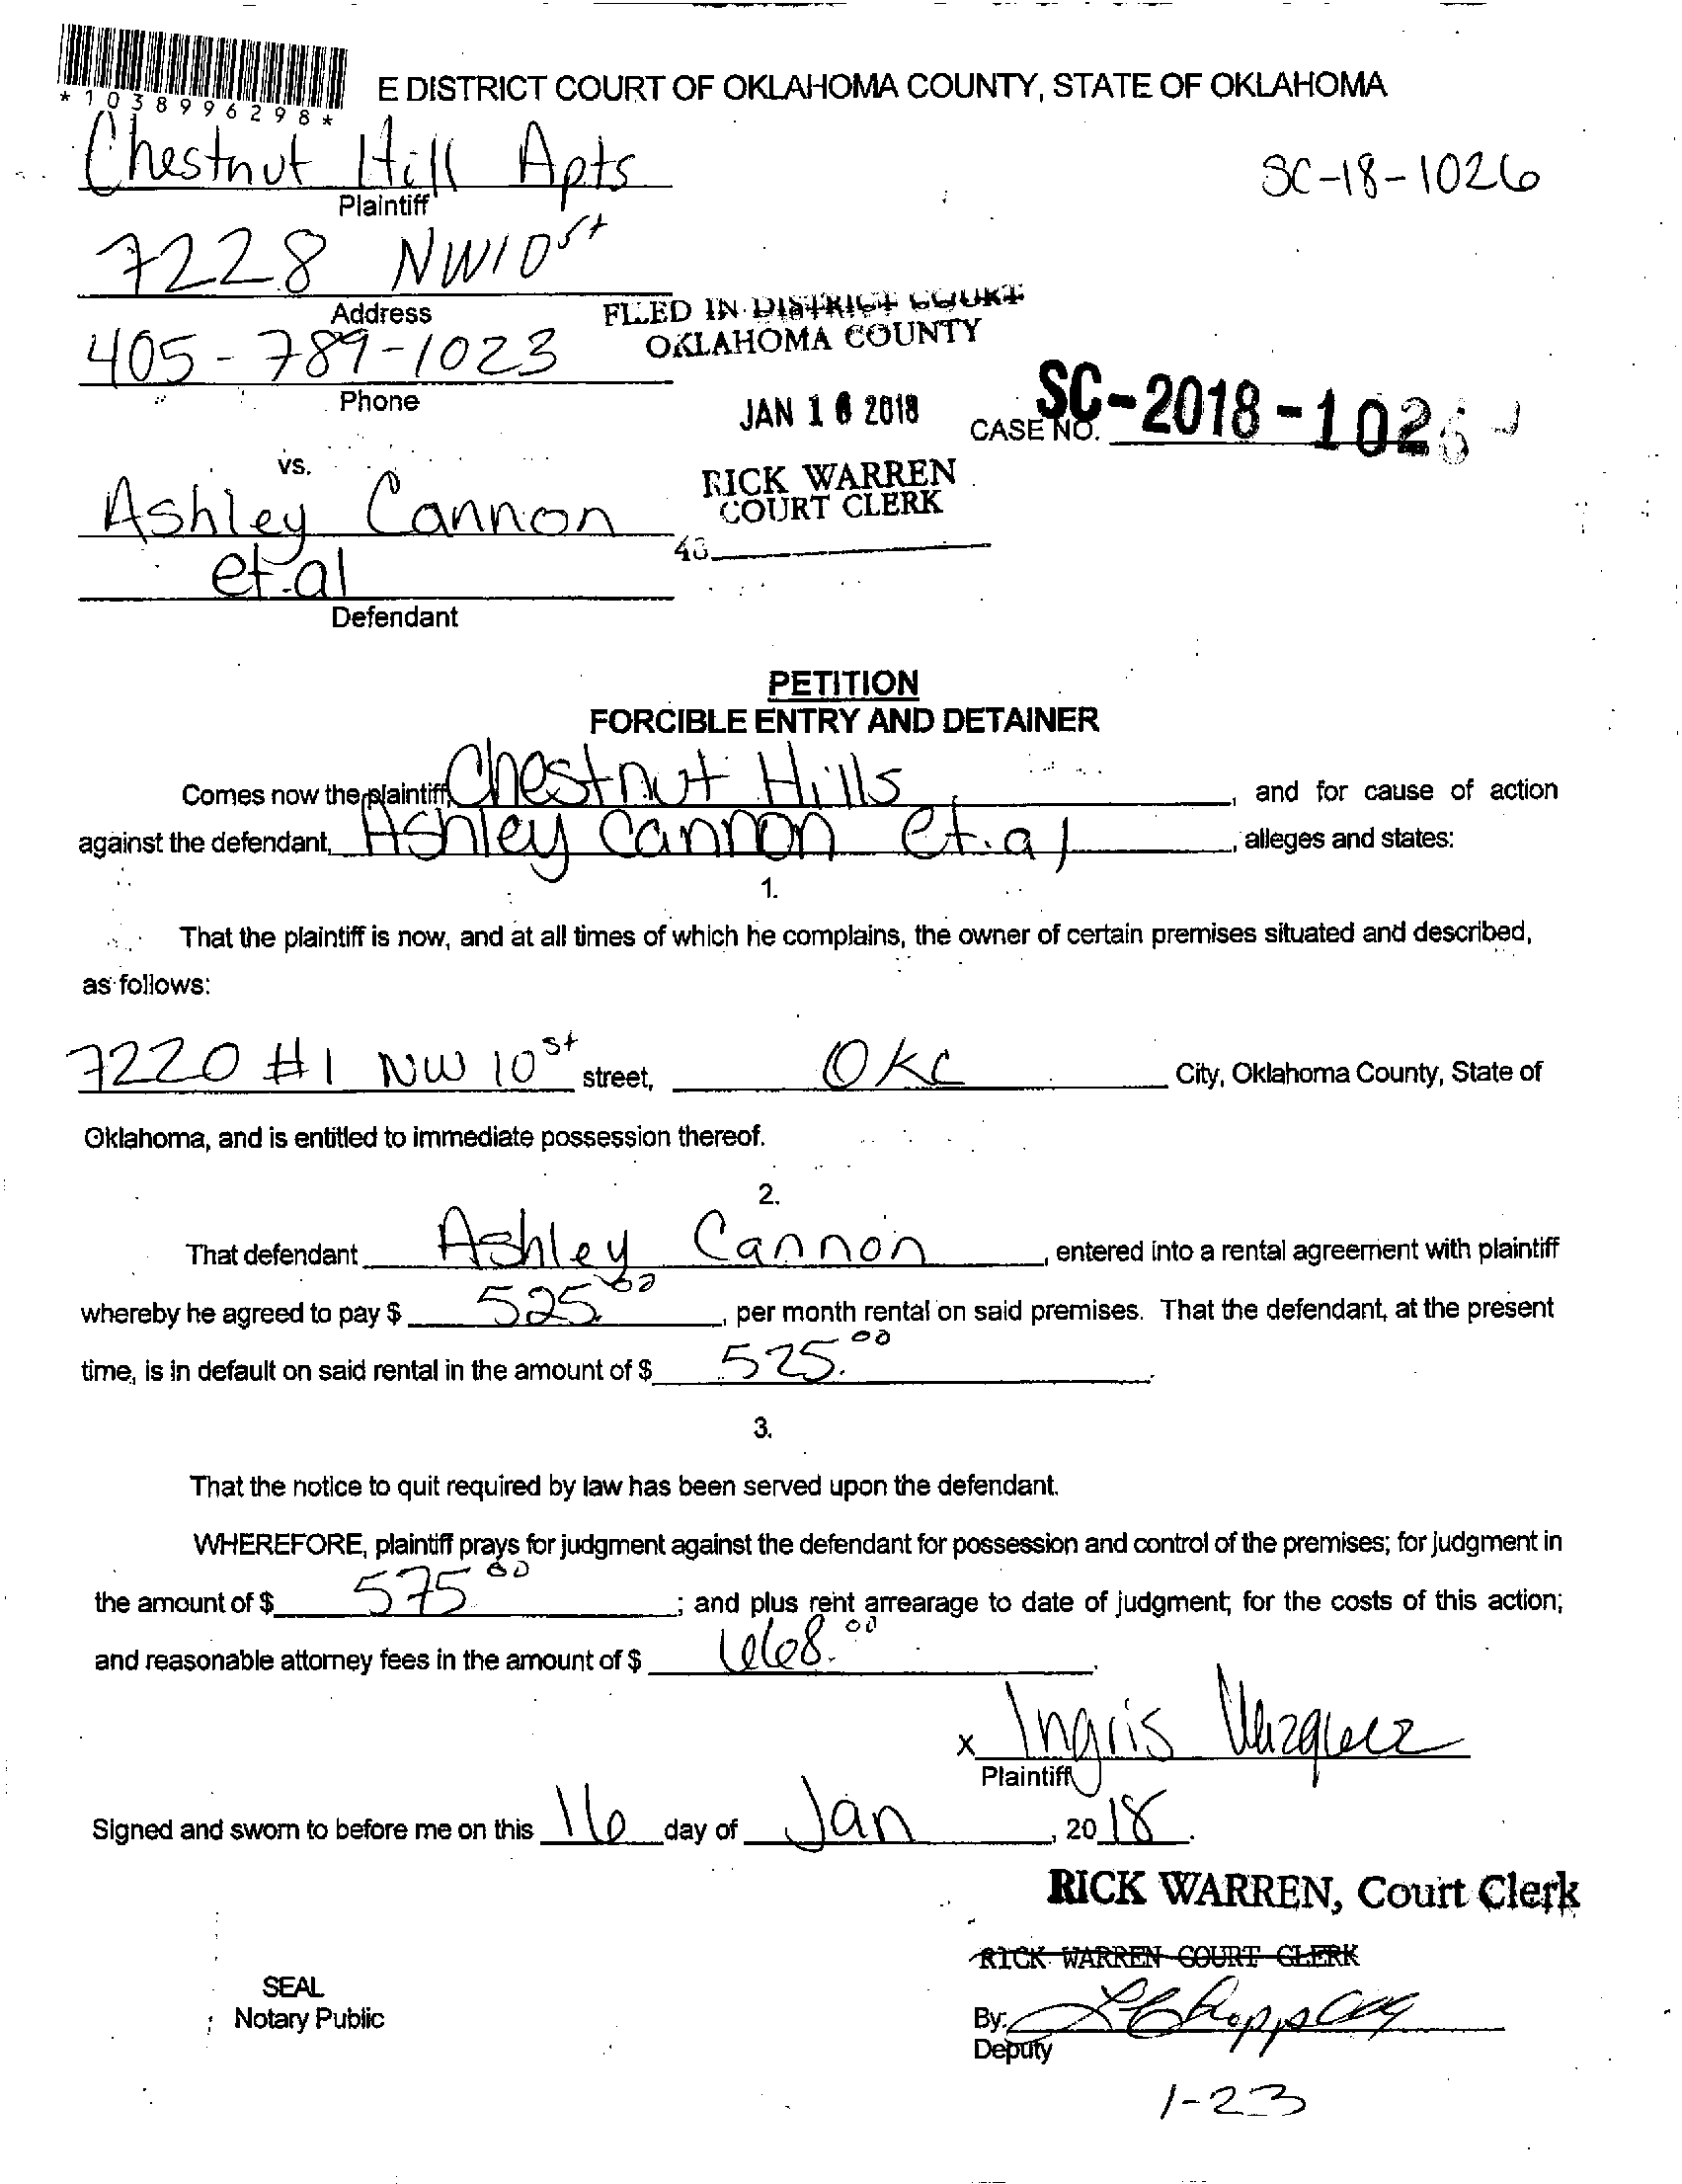 *1038996298*
E DISTRICT COURT OF OKLAHOMA COUNTY, STATE OF OKLAHOMA
Chestnut Hill Apts
SC-18-1026
Plaintiff
7228 NW10st
Address
FILED IN DISTRICT COURT
OKLAHOMA COUNTY
405-789-1023
Phone
JAN 16 2018
CASE NO. SC-2018-1026
vs.
RICK WARREN
COURT CLERK
Ashley Cannon
et.al
Defendant
PETITION
FORCIBLE ENTRY AND DETAINER
Comes now the plaintiff, Chestnut Hills, and for cause of action
against the defendant, Ashley Cannon et.al, alleges and states:
1.
That the plaintiff is now, and at all times of which he complains, the owner of certain premises situated and described,
as follows:
7220 #1 NW 10st street, OKC City, Oklahoma County, State of
Oklahoma, and is entitled to immediate possession thereof.
2.
That defendant Ashley Cannon, entered into a rental agreement with plaintiff
whereby he agreed to pay $ 525.00, per month rental on said premises. That the defendant, at the present
time, is in default on said rental in the amount of $ 525.00.
3.
That the notice to quit required by law has been served upon the defendant.
WHEREFORE, plaintiff prays for judgment against the defendant for possession and control of the premises; for judgment in
the amount of $ 575 00; and plus rent arrearage to date of judgment; for the costs of this action;
and reasonable attorney fees in the amount of $ 668.00.
x Ingris Vazquez
Plaintiff
Signed and sworn to before me on this 16 day of Jan, 2018.
RICK WARREN, Court Clerk
RICK WARREN COURT CLERK
SEAL
Notary Public
By:
Deputy
1-23